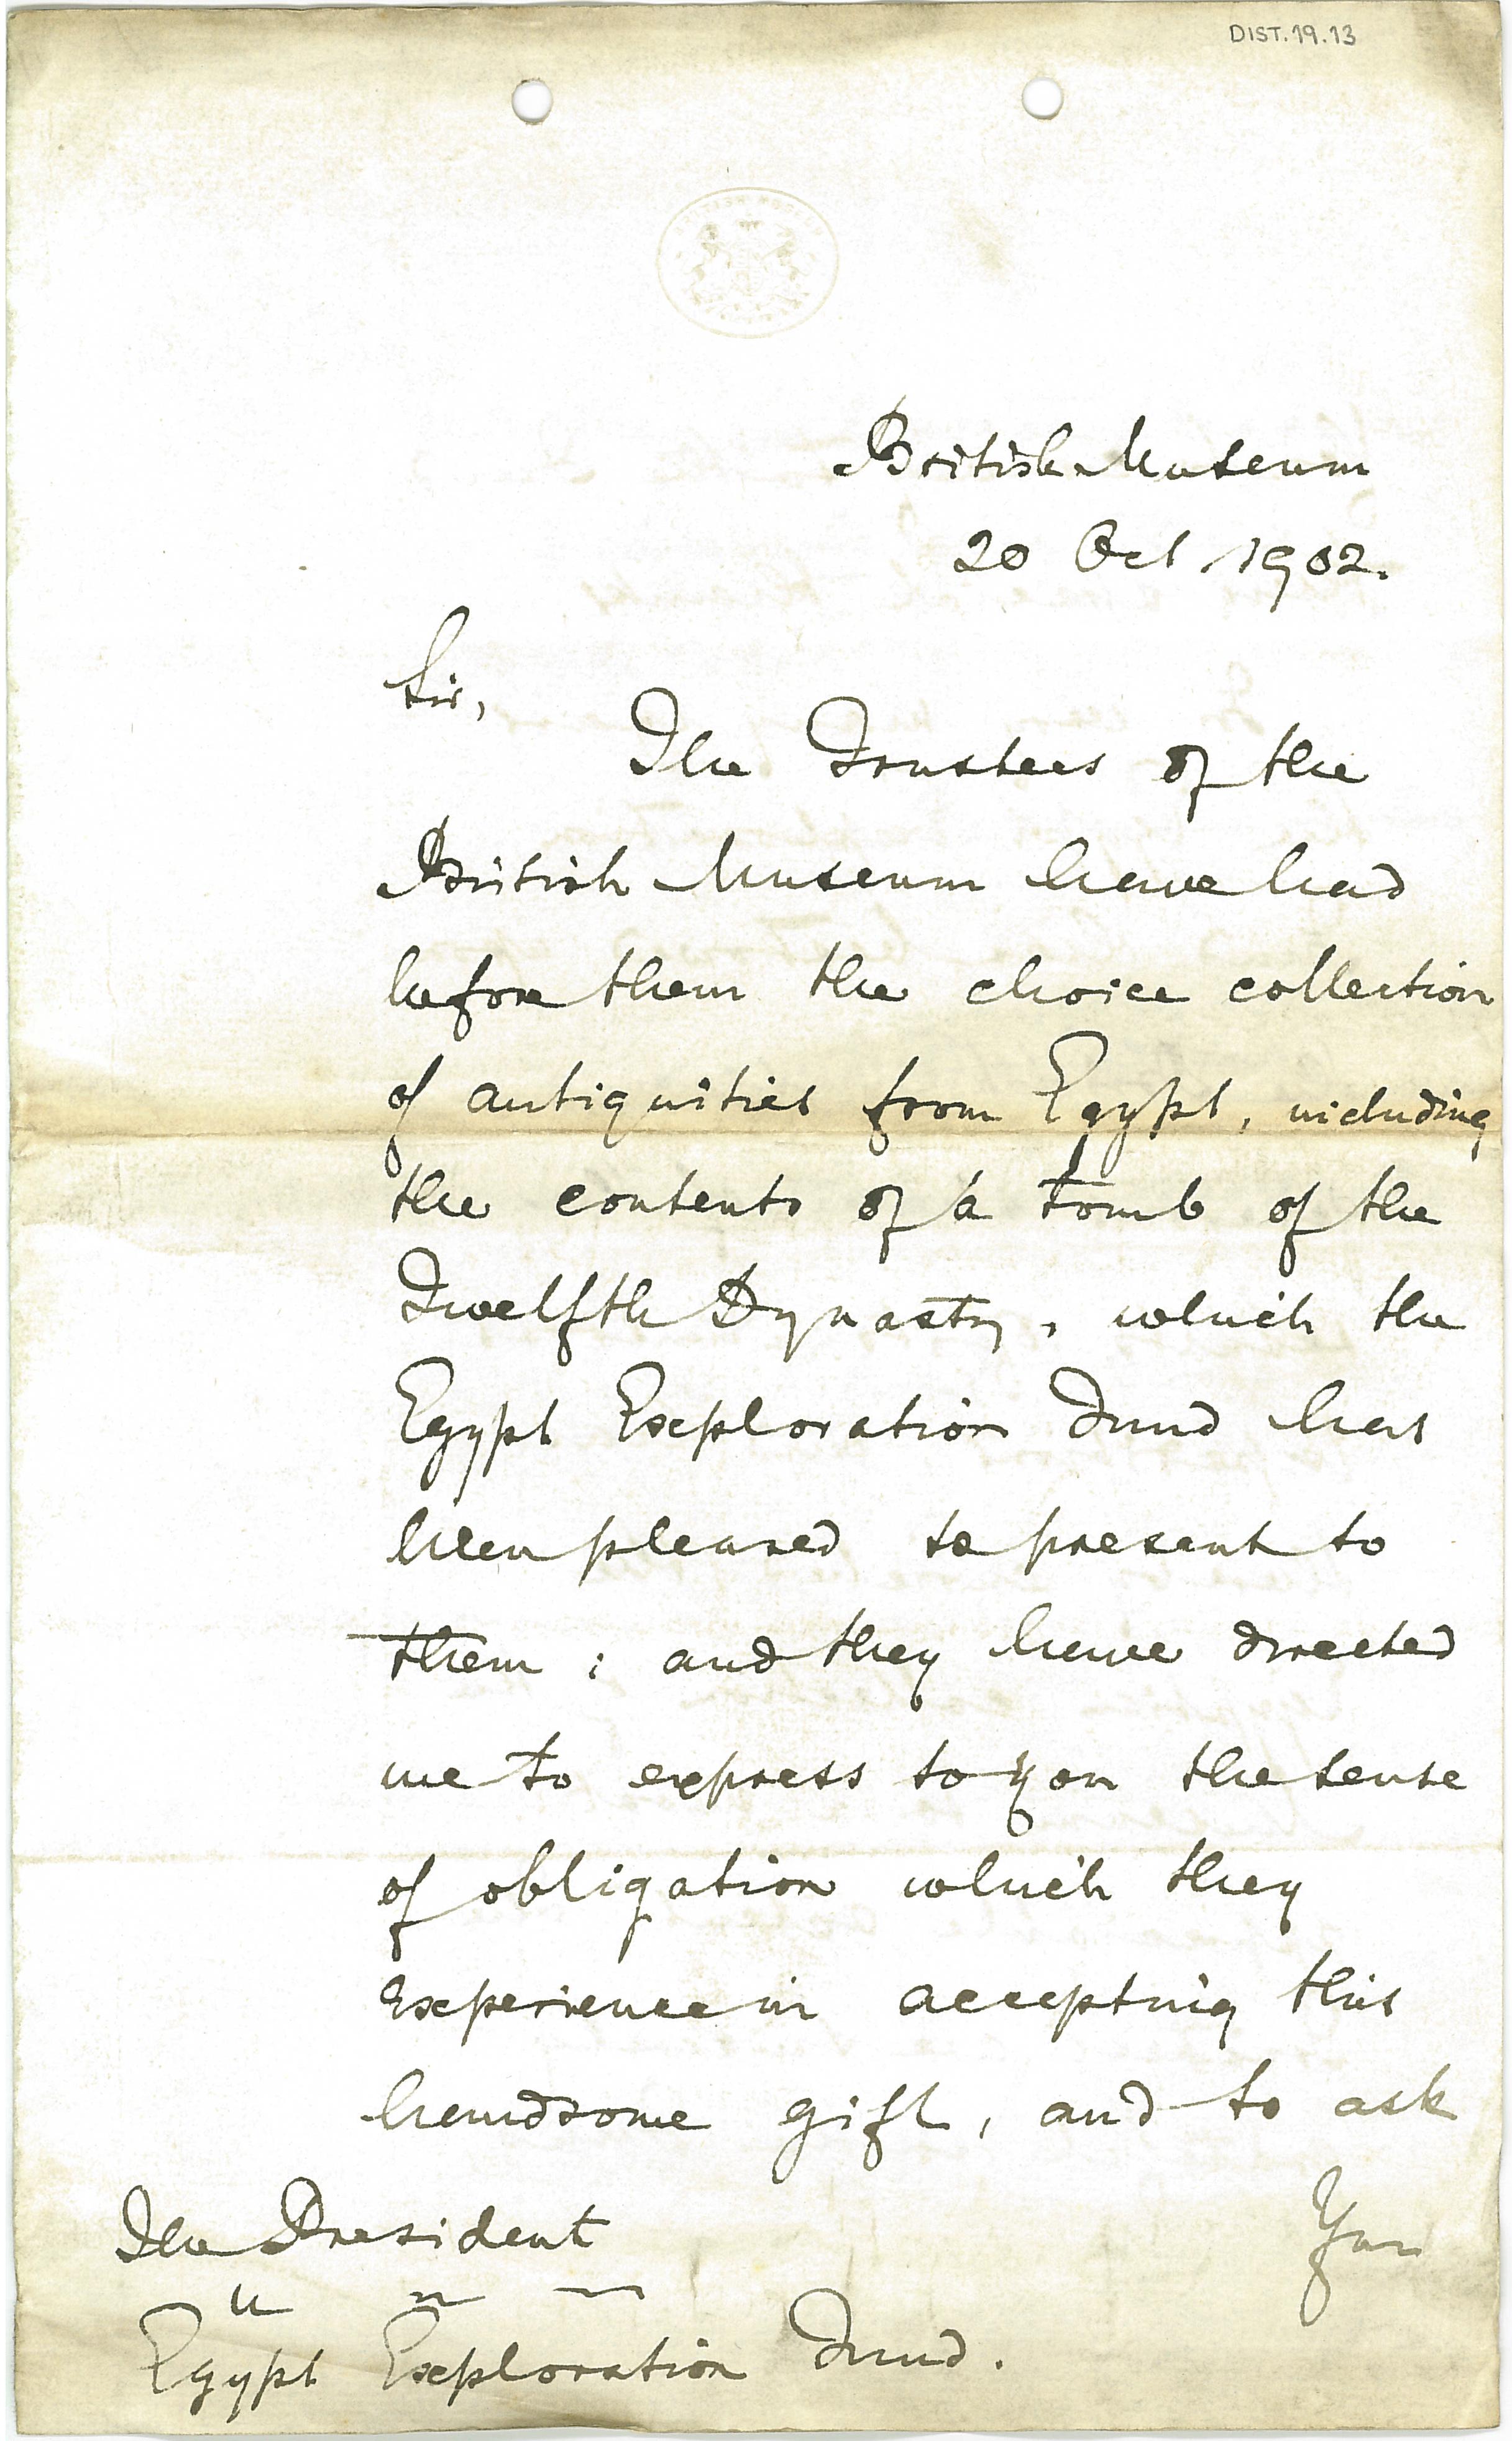 DIST.19.13
British Museum
20 Oct 1902.
Sir,
The Trustees of the
British Museum have had
before them the choice collection
of antiquities from Egypt, including
the contents of a tomb of the
Twelfth Dynasty, which the
Egypt Exploration Fund has
been pleased to present to
them; and they have directed
me to express to you the sense
of obligation which they
experience in accepting this
handsome gift, and to ask
you
The President
Egypt Exploration Fund.